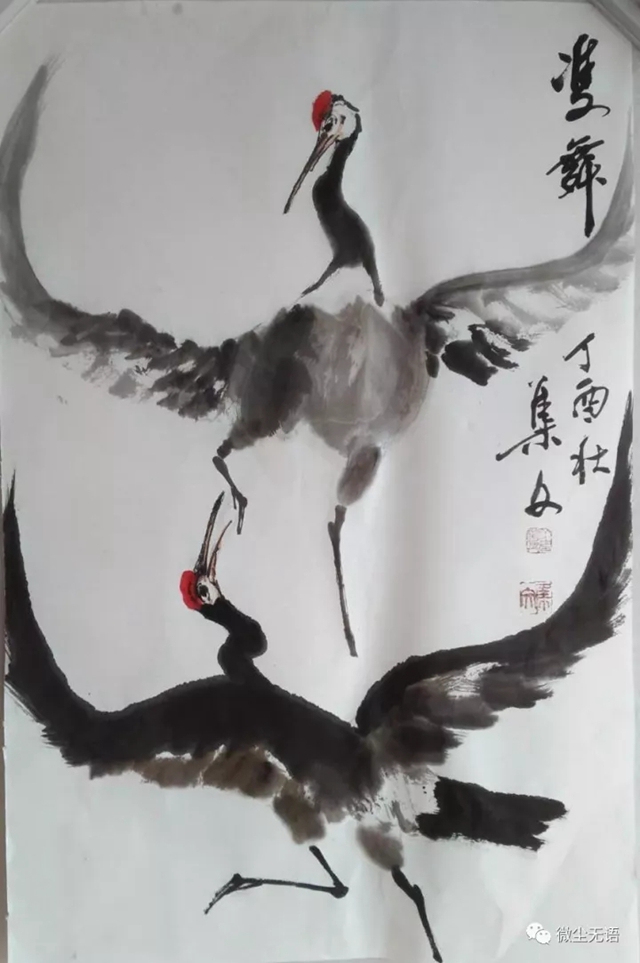 雙舞
丁酉秋
集文
微尘无语